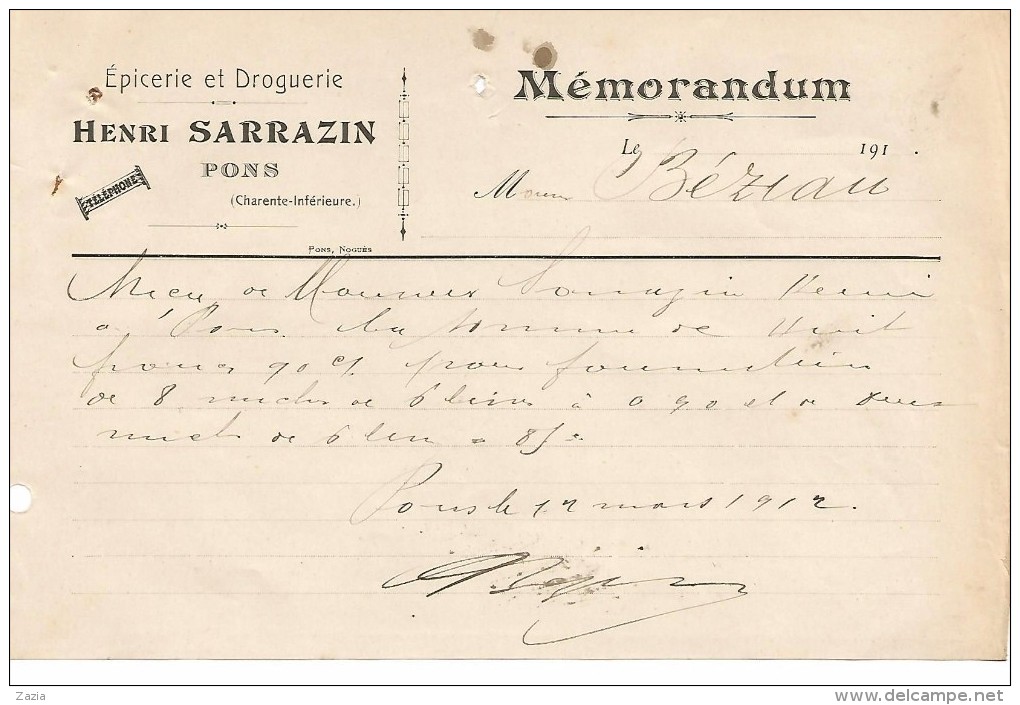 Épicerie et Droguerie
HENRI SARRAZIN
PONS
TÉLÉPHONE
(Charente-Inférieure.)
PONS, NOGUÈS
Mémorandum
Le 191 .
M Béziau
de Monsieur Sarrazin Henri
à Pons la somme de huit
francs 90 cs pour fourniture
de 8 miches de 6 livres à 0 90 et de deux
miches de 6 liv 85c
Pons le 12 mars 1912.
Zazia
www.delcampe.net